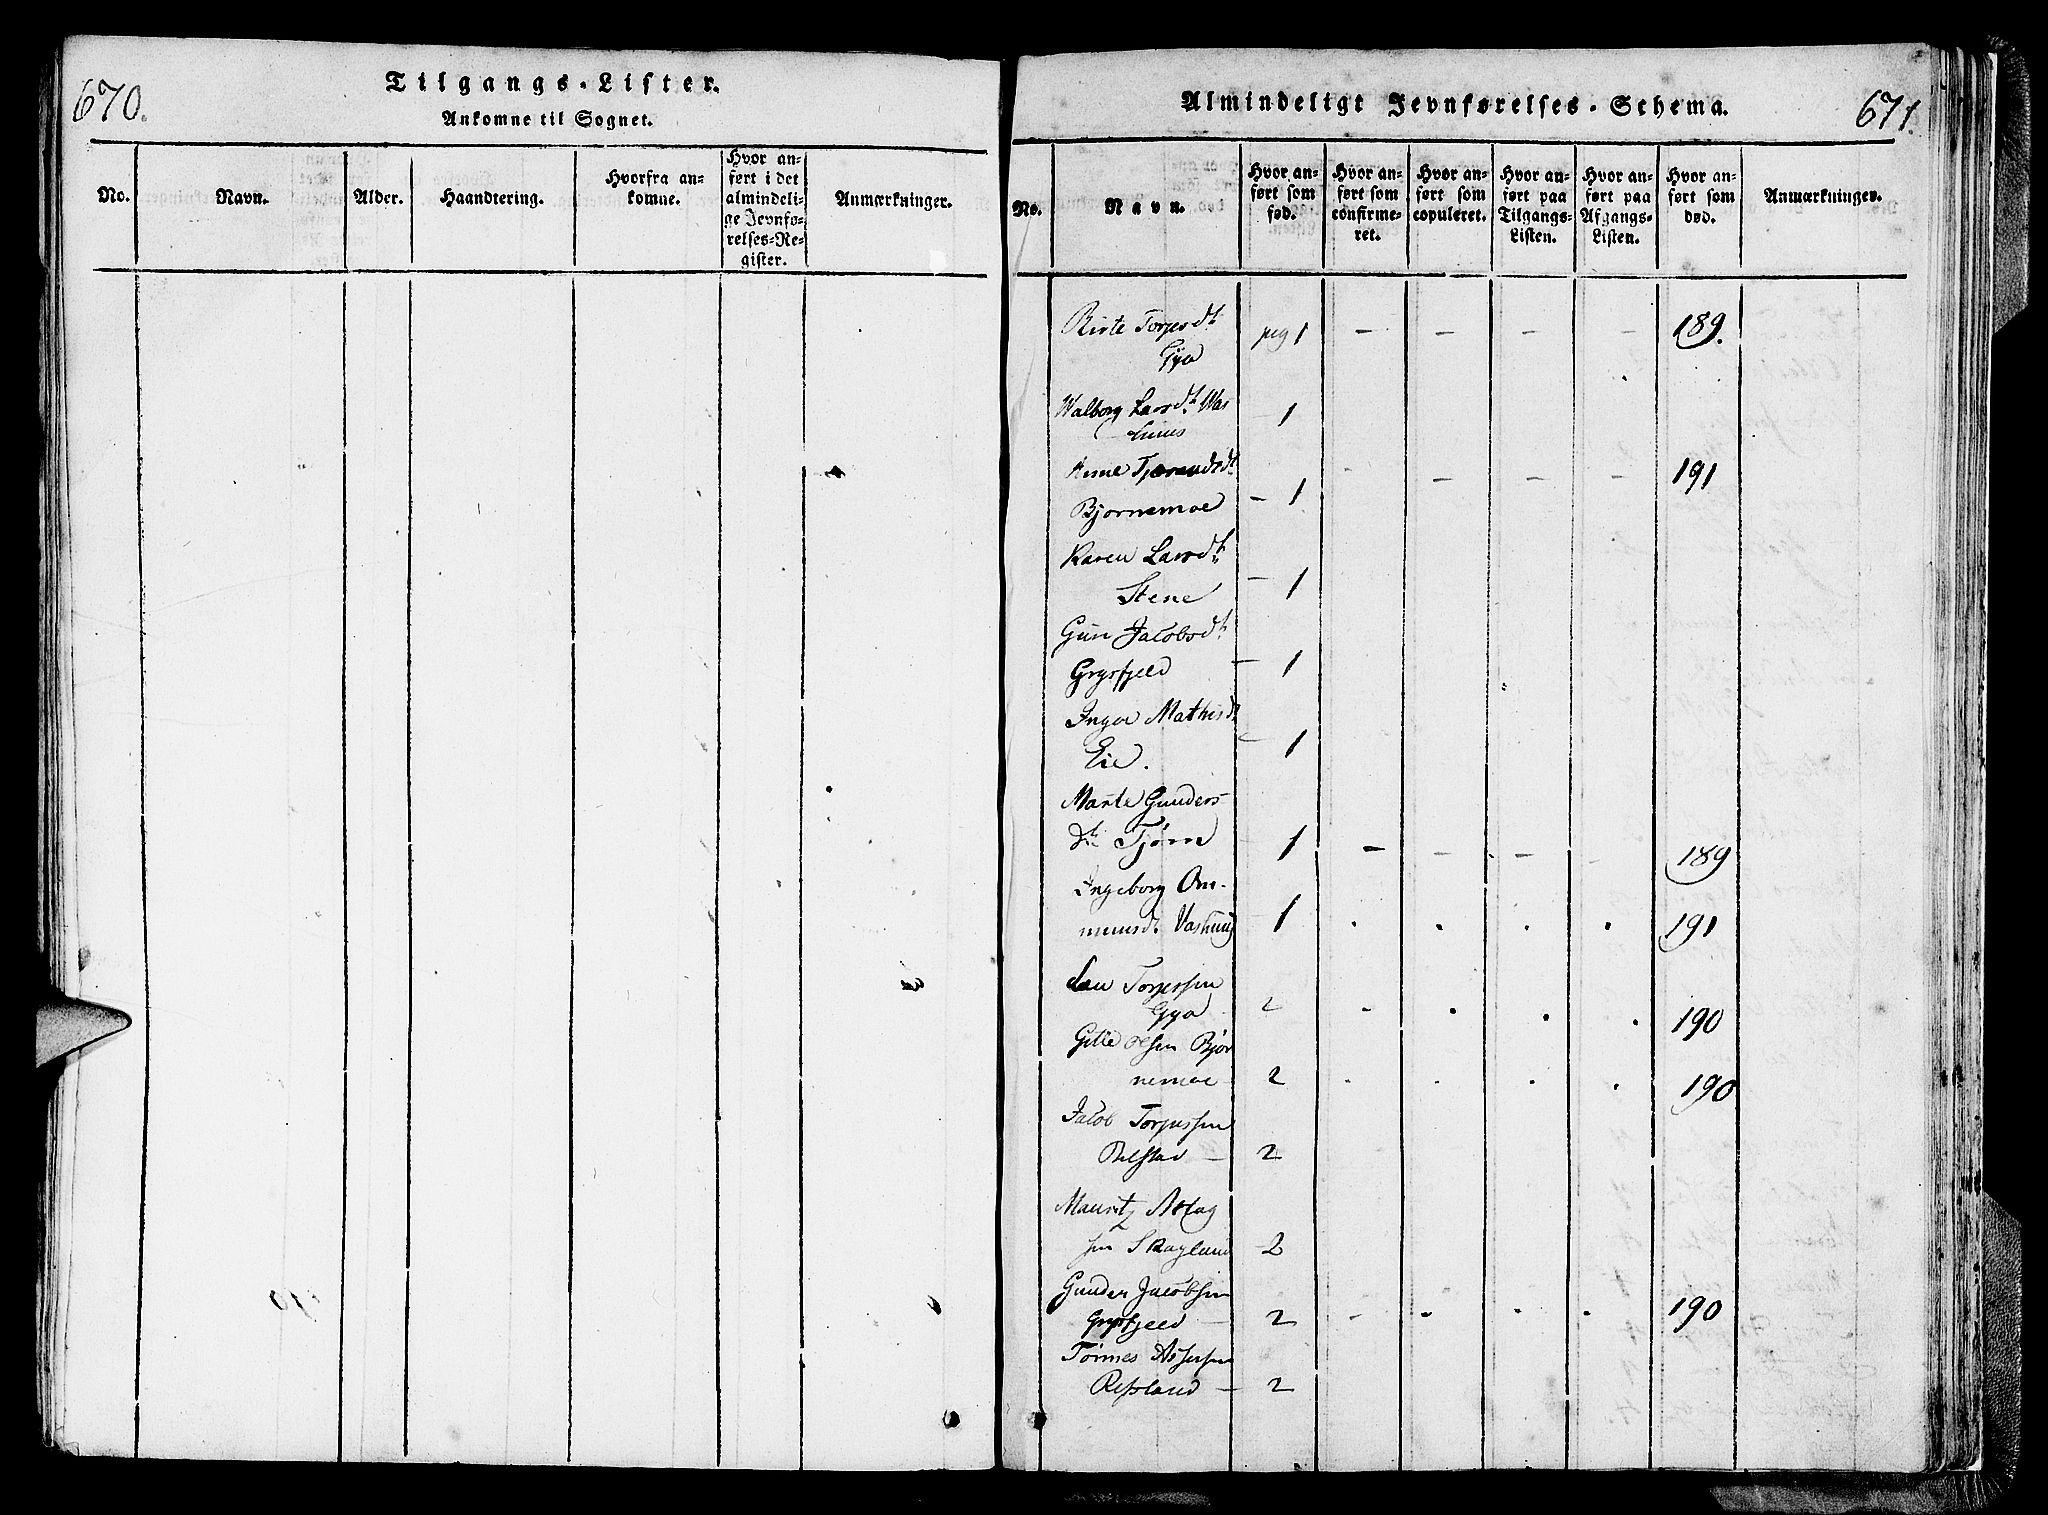 670.
Tilgangs-Lister.
Ankomne til Sognet.
No.
Navn.
Alder.
Haandtering.
Hvorfra an-
komne.
Hvor an-
ført i det
almindeli-
ge Jevnfø-
relses-Re-
gister.
Anmærkninger.
Almindeligt Jevnførelses-Schema.
671.
No.
Navn.
Hvor an-
ført som
fød.
Hvor an-
ført som
confirme-
ret.
Hvor an-
ført som
copuleret.
Hvor an-
ført paa
Tilgangs-
Listen.
Hvor an-
ført paa
Afgangs-
Listen.
Hvor an-
ført som
død.
Anmærkninger.
Birte Torjesdt. pag 1 - - - - 189.
Gya
Walborg Larsdt. - 1
Tjerandsdt. - - - - 191
Bjørnemoe - 1
Karen Larsdt.
Stene - 1
Gun Jacobsdt.
Grysfjeld - 1
Inger Mathisdt
Eie. - 1
Marte Gunders-
dt. Tjørn 1 - - - - 189
Ingeborg Om-
mundsdt. Vashuus - 1 . . . . 191
Torjessen
Gya 2 . . . . 190
Olsen Bjør
nemoe 2 . . . . 190
Jacob Torjessen
Refstad - 2
Mauritz Aslag
sen Skagland - 2
Gunder Jacobsen
Grysfjeld - 2 - . . . 190
Tønnes Assersen
Refsland - 2